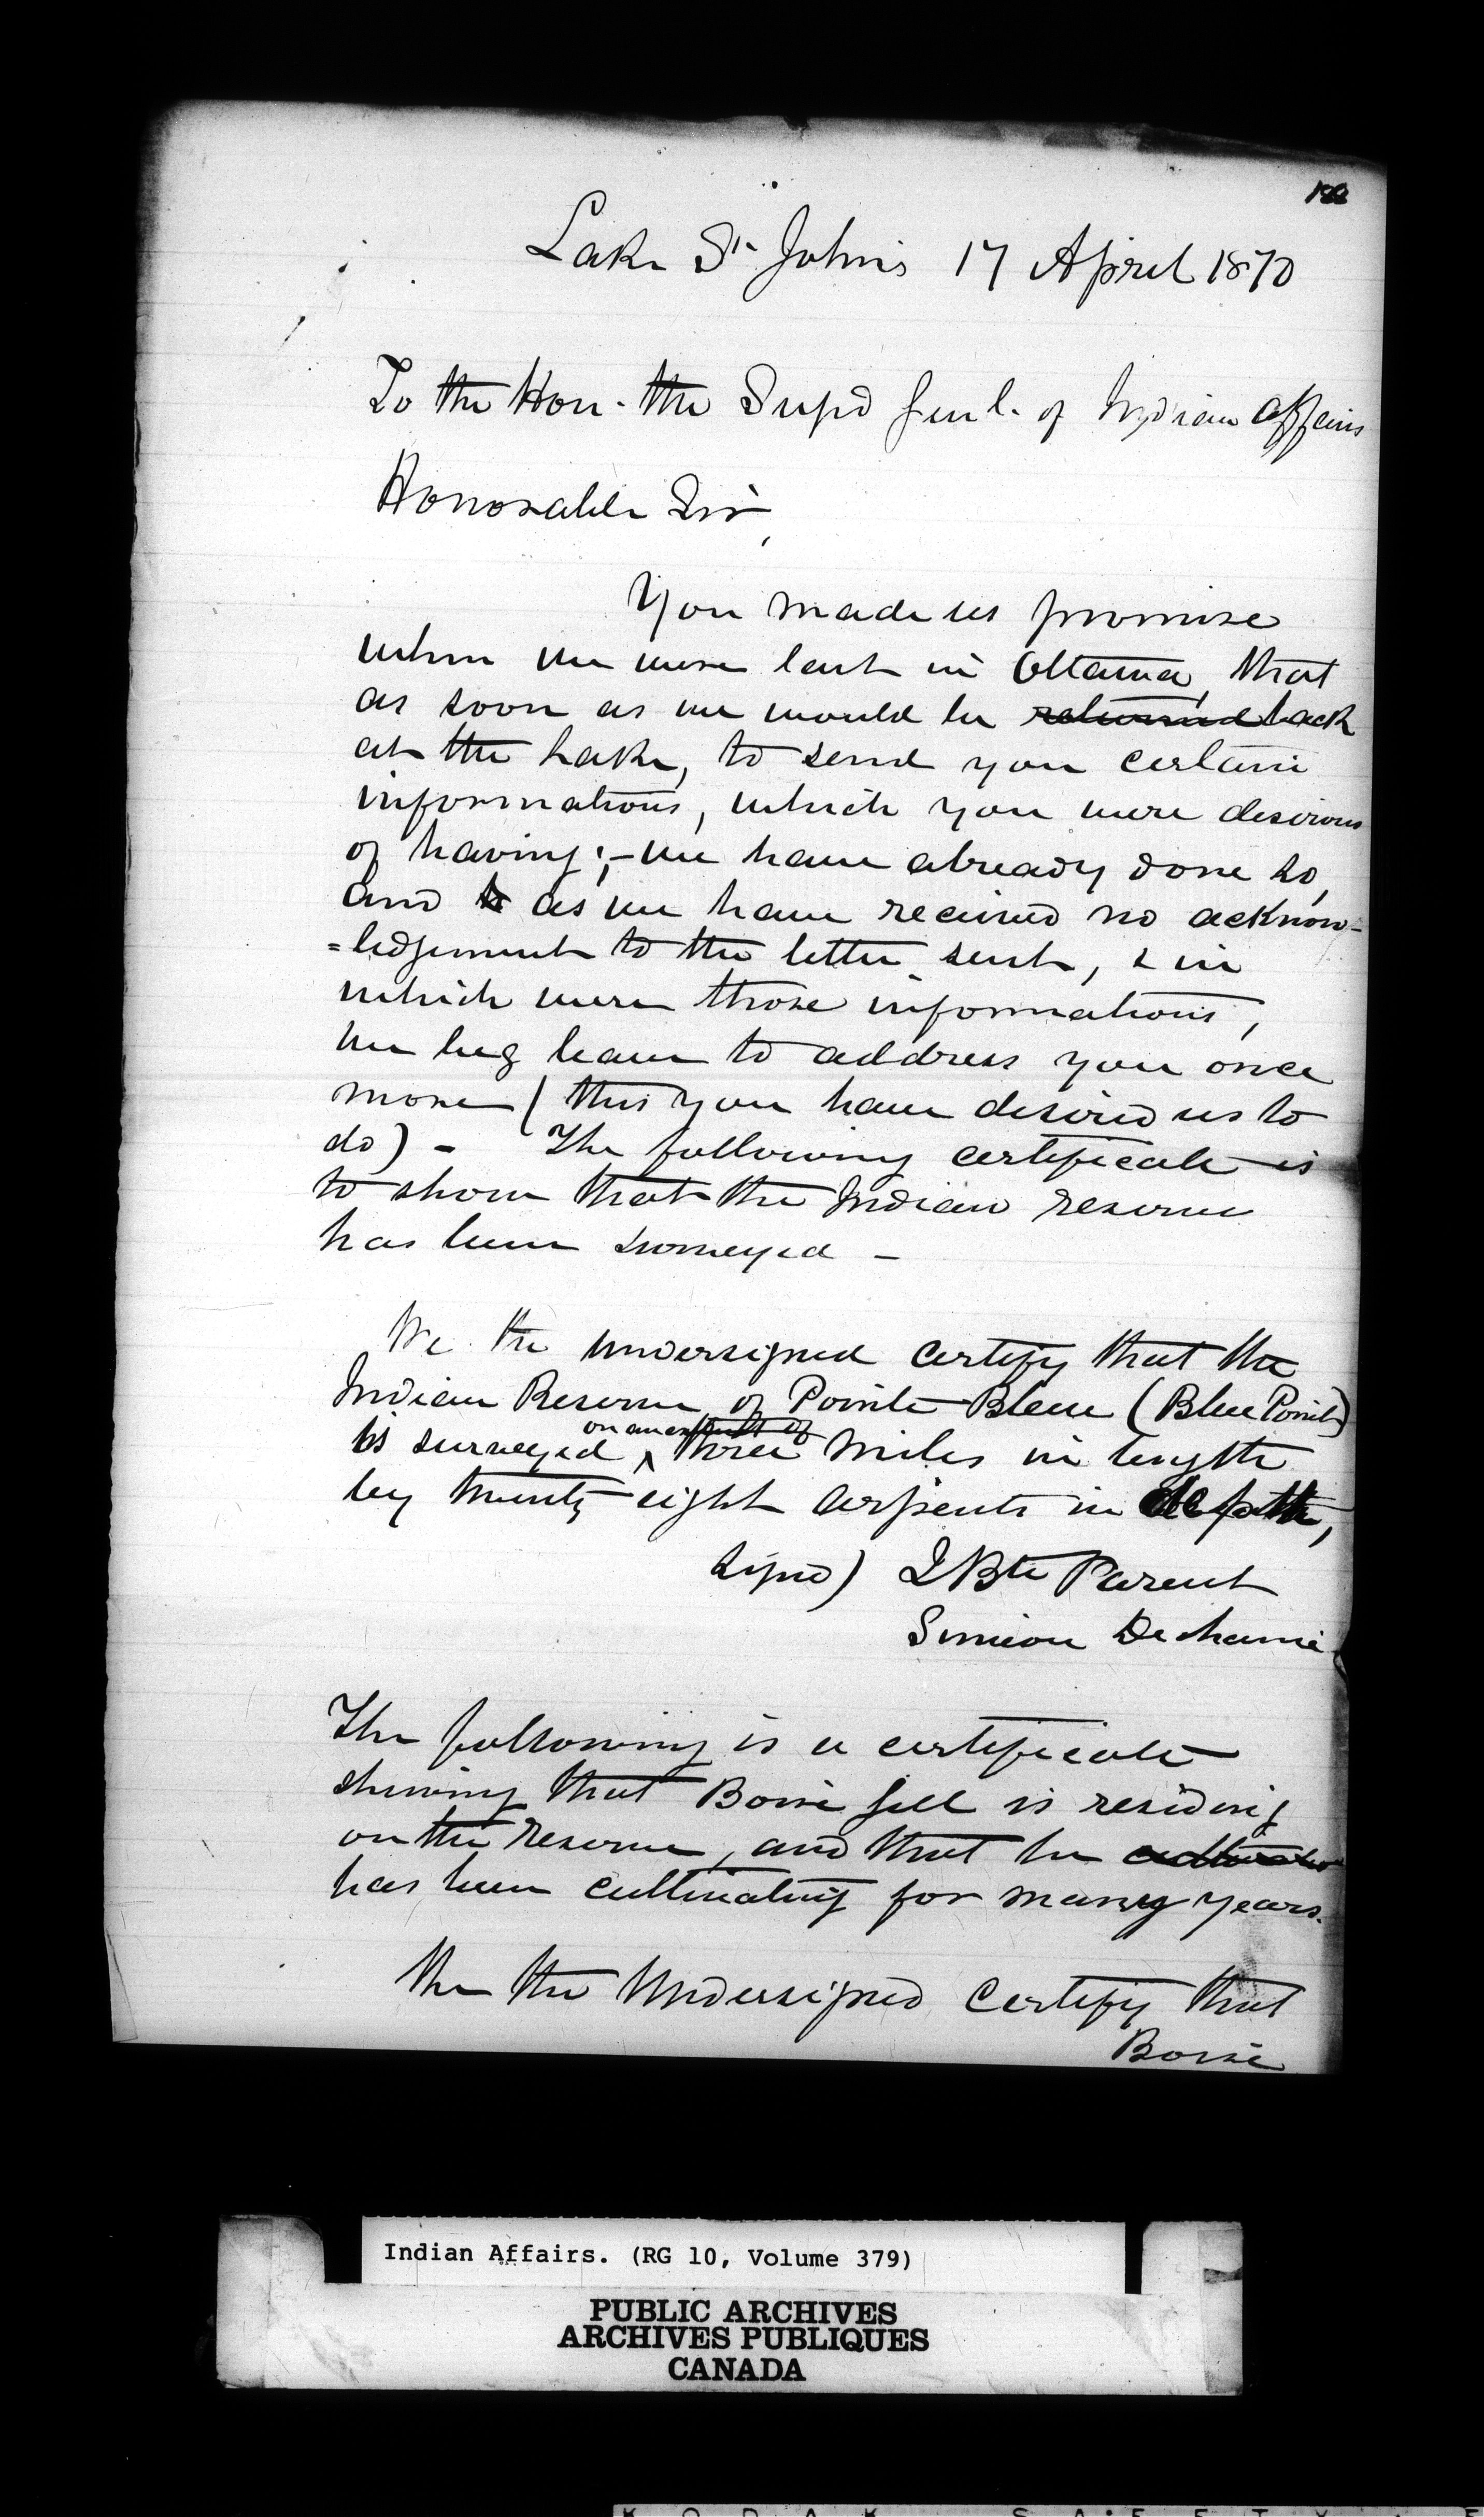 Lake St Johns 17 April 1870
To the Hon. the Supd Genl. of Indian Affairs
Honorable Sir,
You made us promise
when we were last in Ottawa, that
as soon as we would be returned back
at the Lake, to send you certain
informations, which you were desirous
of having; - we have already done so,
and as we have received no acknow-
=ledgement to the letter sent, & in
which were those informations,
we beg leave to address you once
more (this you have desired us to
do) - The following certificate is
to show that the Indian reserve
has been surveyed -
We the undersigned certify that the
Indian Reserve of Pointe Bleue (Blue Point)
is surveyed on an extent of three miles in length
by twenty eight arpents in depth,
Signed) J Bte Parent
Simeon
The following is a certificate
showing that Boisé Gill is residing
on the reserve, and that he cultivated
has been cultivating for many years.
We the Undersigned Certify that
Boisé
Indian Affairs. (RG 10, Volume 379)
PUBLIC ARCHIVES
ARCHIVES PUBLIQUES
CANADA